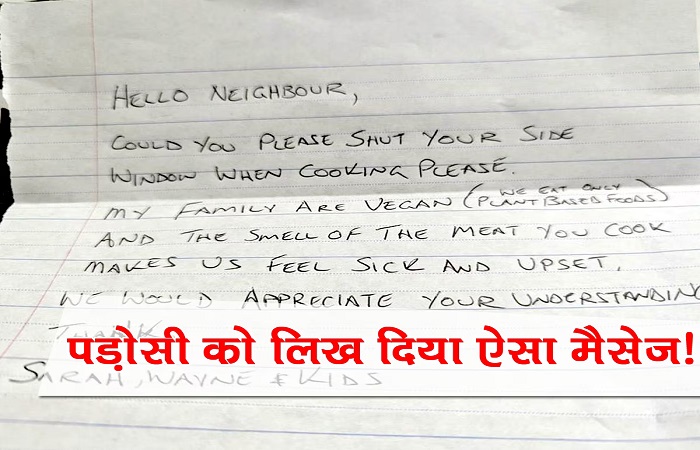 HELLO NEIGHBOUR,
COULD YOU PLEASE SHUT YOUR SIDE
WINDOW WHEN COOKING PLEASE.
MY FAMILY ARE VEGAN (WE EAT ONLY PLANT BASED FOODS)
AND THE SMELL OF THE MEAT YOU COOK
MAKES US FEEL SICK AND UPSET.
WE WOULD APPRECIATE YOUR UNDERSTANDING
THANK
पड़ोसी को लिख दिया ऐसा मैसेज!
SARAH, WAYNE & KIDS